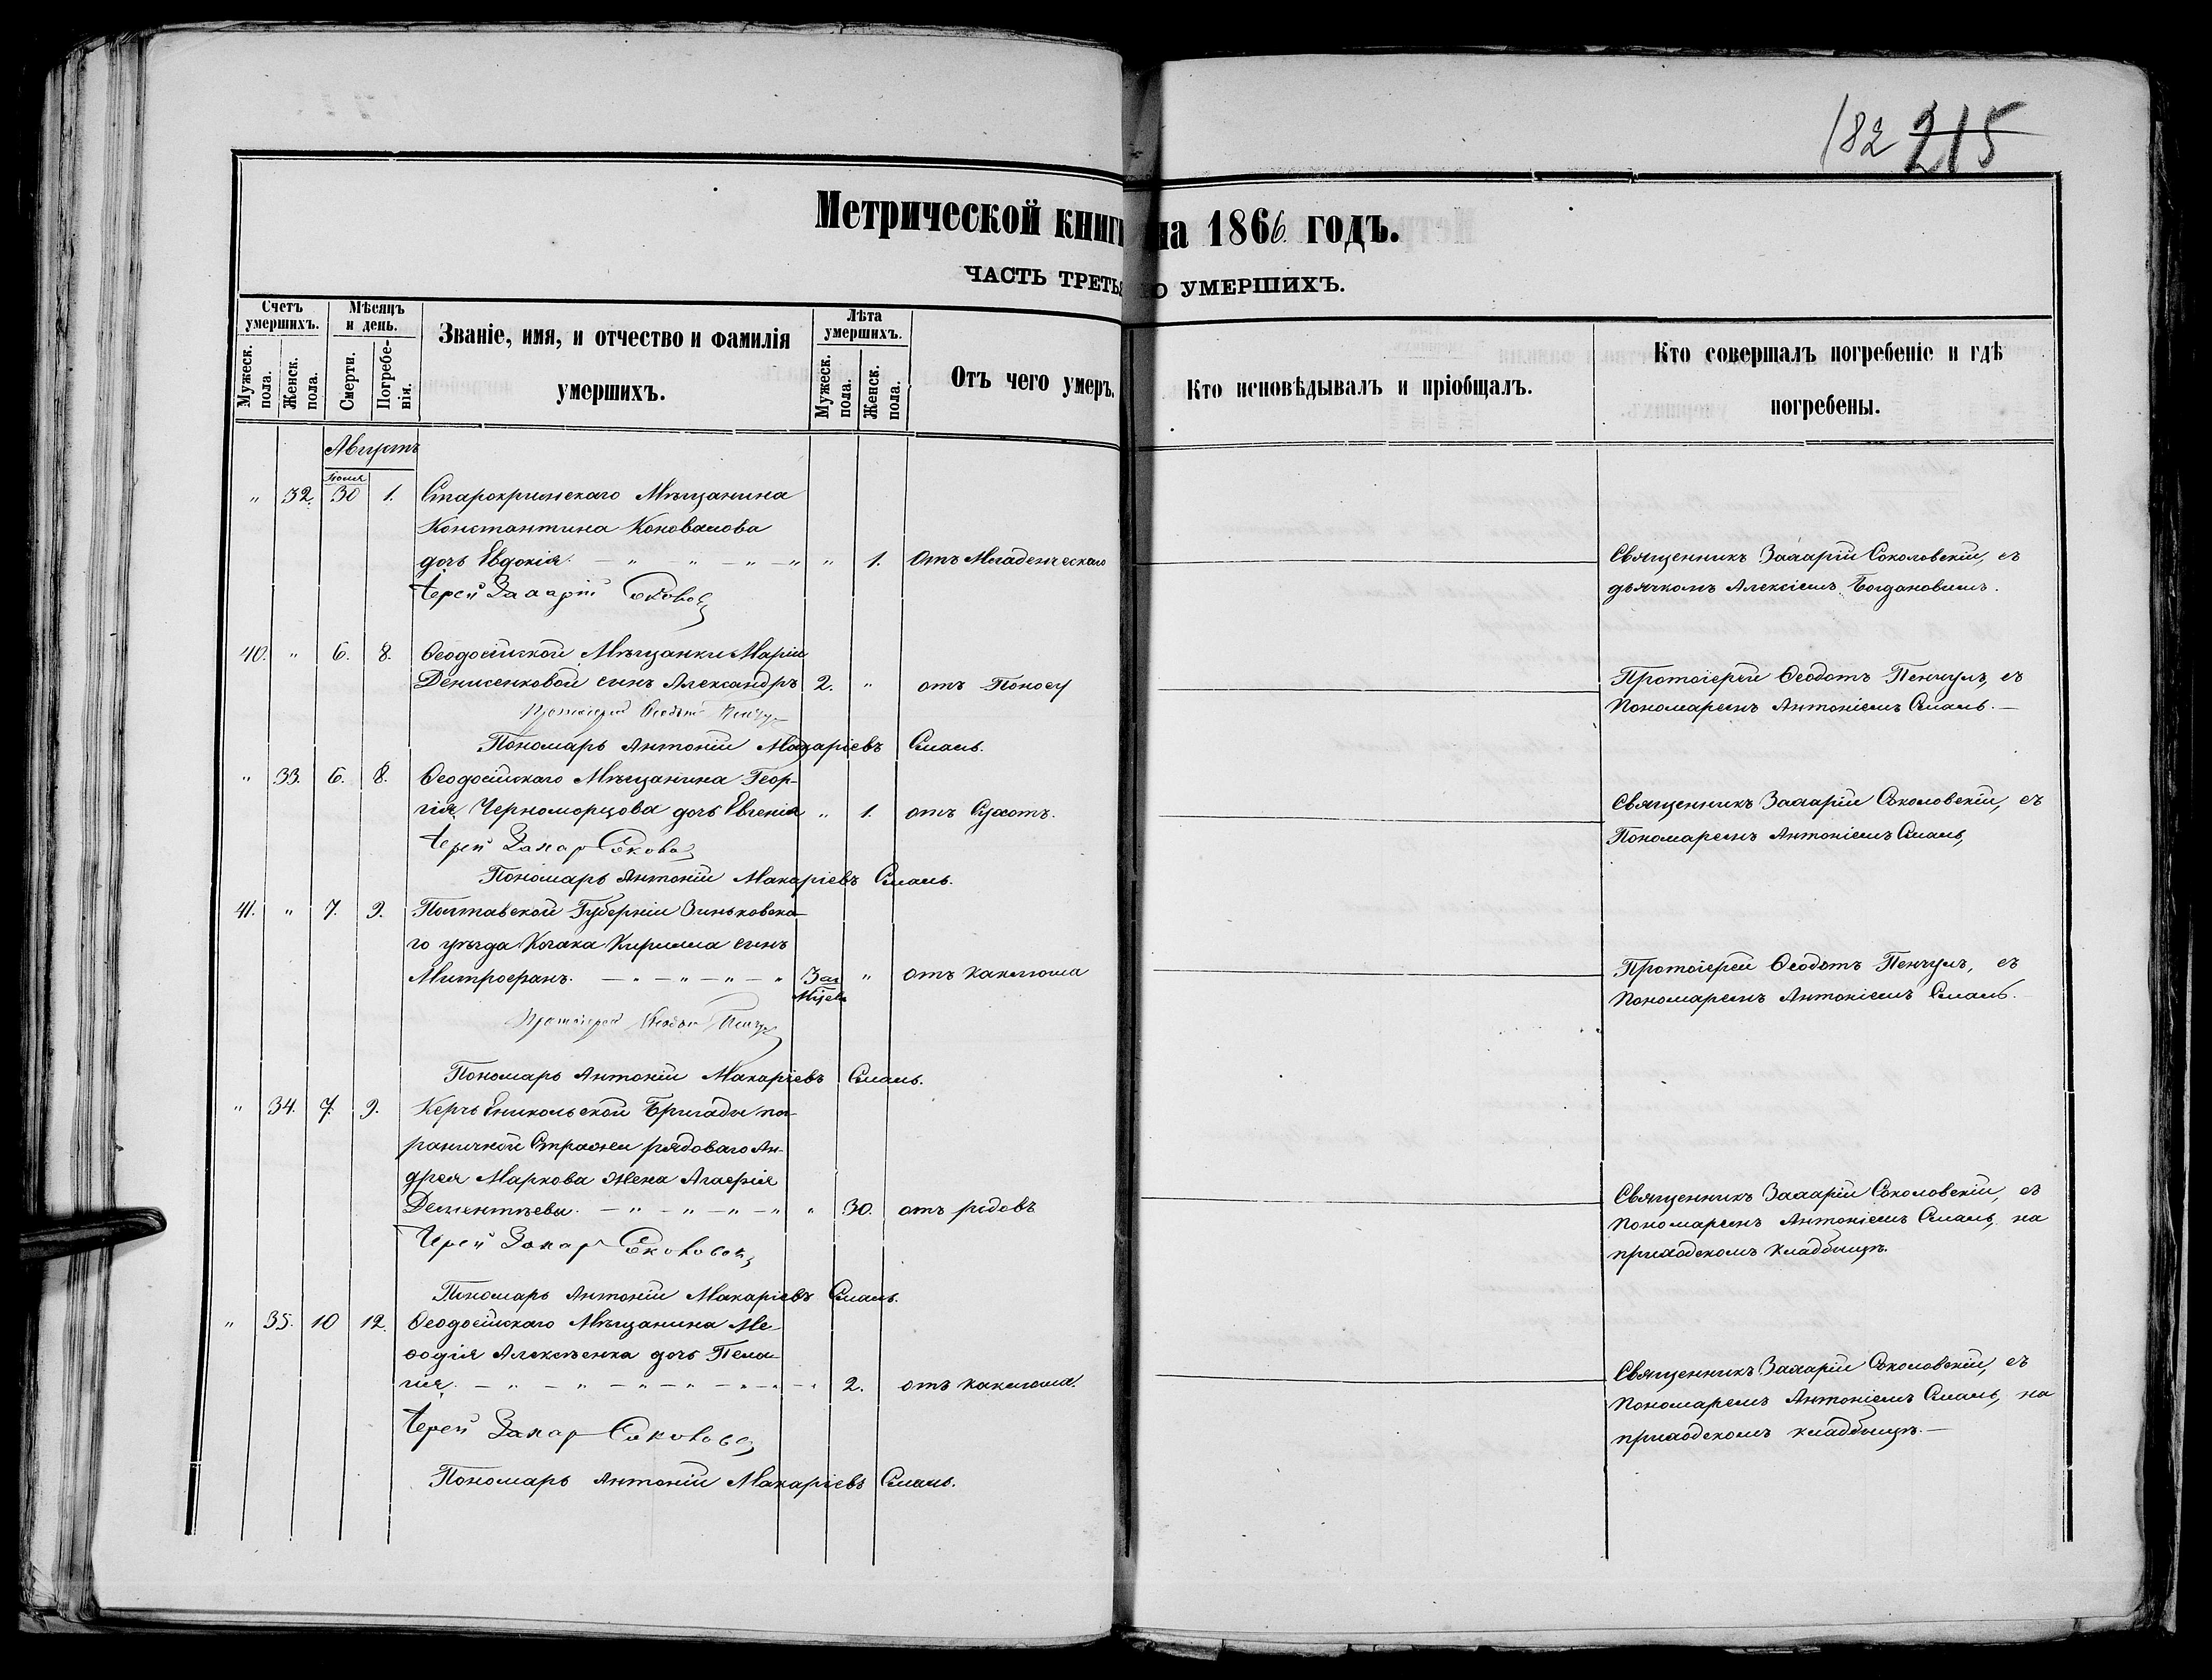 182 215
Метрической книги на 1866 годъ.
ЧАСТЬ ТРЕТЬЯ О УМЕРШИХЪ.
Счетъ умершихъ.
Мужеск. пола.
Женск. пола.
Мѣсяцъ и день.
Смерти.
Погребенія.
Званіе, имя, и отчество и фамилія
умершихъ.
Лѣта умершихъ.
Мужеск. пола.
Женск. пола.
Отъ чего умеръ.
Кто исповѣдывалъ и пріобщалъ.
Кто совершалъ погребеніе и гдѣ
погребены.
Августъ
Іюля
" 32. 30 1. Старокримскаго Мѣщанина
Константина Коновалова
дочь Евдокія. — " — " — " — " " 1. Отъ Младенческаго
Священникъ Захарій Соколовскій, съ
дьячкомъ Алексіемъ Богдановымъ.
Іерей Захарій
40. " 6. 8. Ѳеодосійской Мѣщанки Маріи
Денисенковой сынъ Александръ 2. " отъ Поносу
Протоіерей Ѳеодотъ Пенчулъ, съ
Пономаремъ Антоніемъ Смаль. —
Протоіерей Ѳеодотъ
Пономарь Антоній Макаріевъ Смаль.
" 33. 6. 8. Ѳеодосійскаго Мѣщанина Геор-
гія Черноморцова дочь Евгенія " 1. отъ Сухотъ.
Священникъ Захарій Соколовскій, съ
Пономаремъ Антоніемъ Смаль,
Іерей Захар
Пономарь Антоній Макаріевъ Смаль.
41. " 7. 9. Полтавской Губерніи Зиньковска-
го уѣзда Козака Кирилла сынъ
Митрофанъ. — " — " — " — " 3 "  отъ каклюша
Протоіерей Ѳеодотъ Пенчулъ, съ
Пономаремъ Антоніемъ Смаль.
Протоіерей
Пономарь Антоній Макаріевъ Смаль.
" 34. 7. 9. Керчь Еникольской Бригады по-
граничной Стражи рядоваго Ан-
дрея Маркова жена Агафія
Дементьева. — " — " — " — " " 30. отъ родовъ
Священникъ Захарій Соколовскій, съ
Пономаремъ Антоніемъ Смаль, на
приходскомъ кладбищѣ.
Іерей Захар
Пономарь Антоній Макаріевъ Смаль.
" 35. 10 12. Ѳеодосійскаго Мѣщанина Ме-
ѳодія Алексѣенка дочь Пела-
гія. — " — " — " — " — " — " 2. отъ каклюша.
Священникъ Захарій Соколовскій, съ
Пономаремъ Антоніемъ Смаль, на
приходскомъ кладбищѣ. —
Іерей Захар
Пономарь Антоній Макаріевъ Смаль.